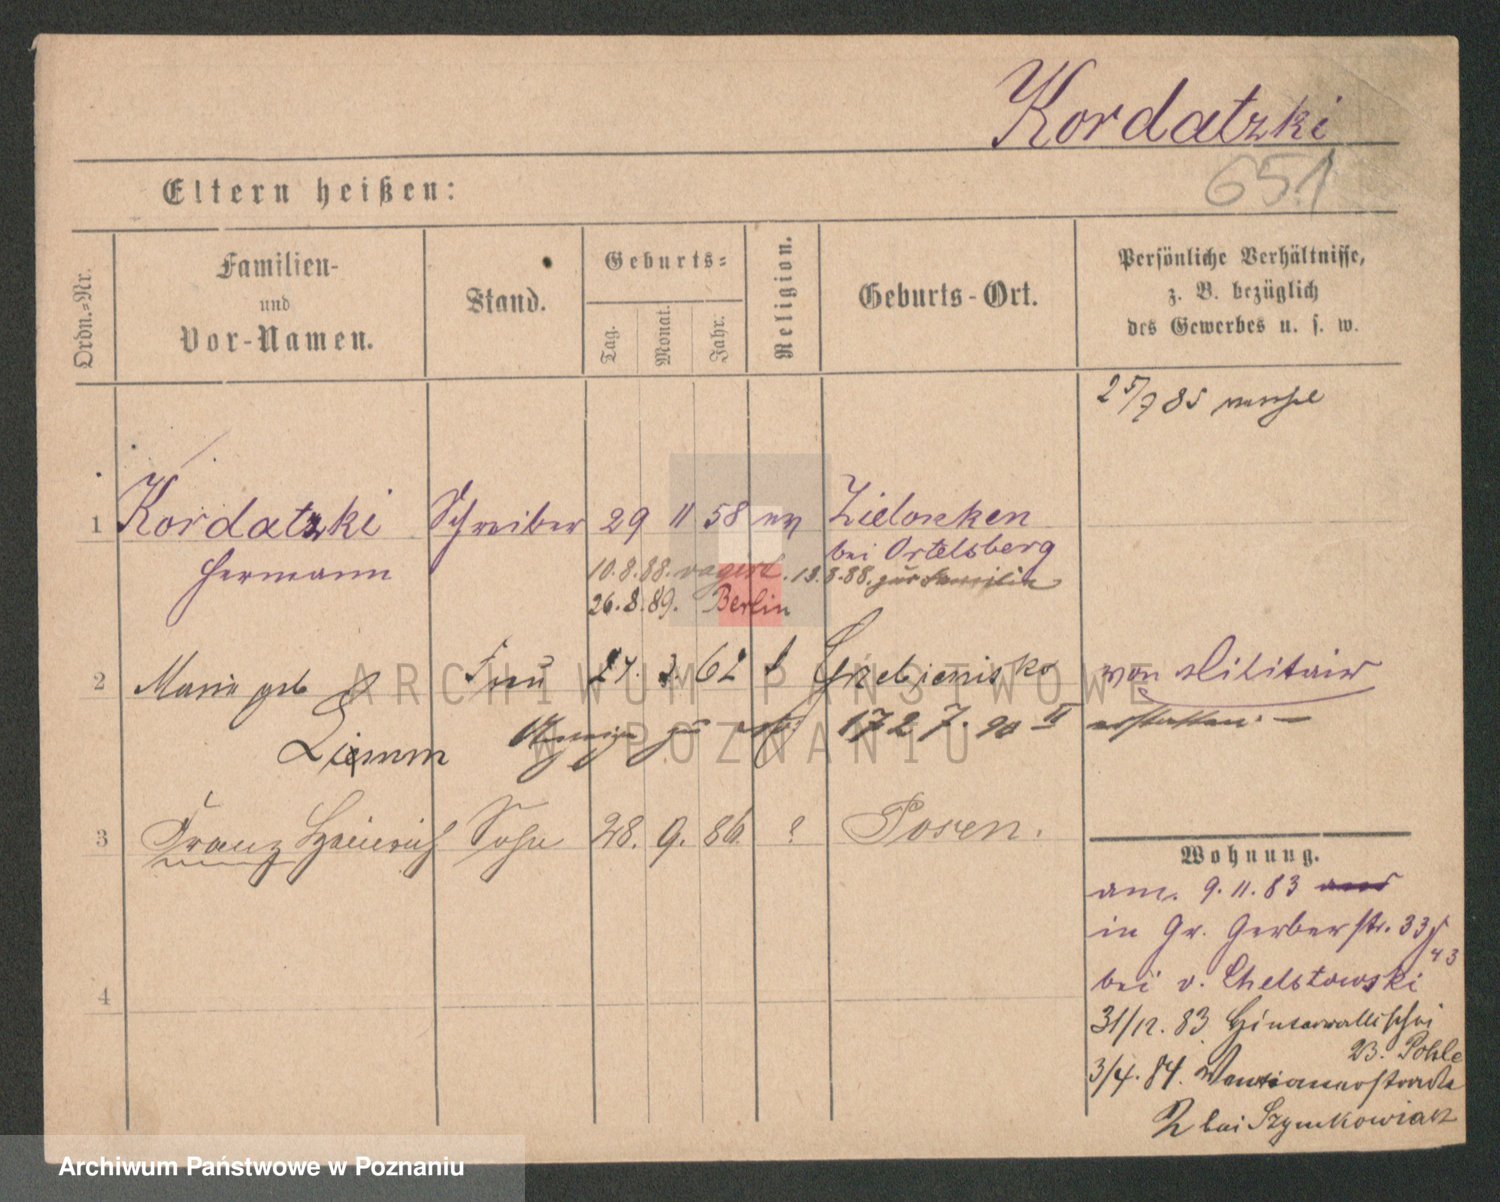 Kordatzki
651
Eltern heißen:
Ordn.-Nr.
Familien-
und
Vor-Namen.
Stand.
Geburts-
Tag.
Monat.
Jahr.
Religion.
Geburts-Ort.
Persönliche Verhältnisse,
z. B. bezüglich
des Gewerbes u. s. w.
25/9 85
1 Kordatzki Schreiber 29 11 58 ev
Hermann
bei Ortelsberg
10.8.88. vagirt. 13.8.88. zur Familie
26.8.89. Berlin
2 Maria geb Frau 27. 3. 62 Grzebienisko
Ziemm
von Militair
Anzeige zu 1727. 90 II erstatten. —
3 Franz Heinrich Sohn 28. 9. 86. ? Posen.
4
Wohnung.
am 9.11.83
in Gr. Gerberstr. 33
43
bei v. Chelstowski
31/12. 83 Hinterwallischei
B. Pohle
3/4. 84. Venetianerstraße
2 bei Szymkowiak
ARCHIWUM PAŃSTWOWE
W POZNANIU
Archiwum Państwowe w Poznaniu